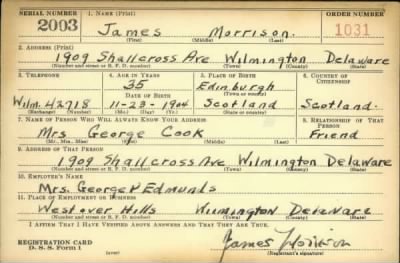 SERIAL NUMBER 1. NAME (Print) ORDER NUMBER
2003 James Morrison. 1031
(First) (Middle) (Last)
2. ADDRESS (Print)
1909 Shallcross Ave Wilmington Delaware
(Number and street or R. F. D. number) (Town) (County) (State)
3. TELEPHONE 4. AGE IN YEARS 5. PLACE OF BIRTH 6. COUNTRY OF CITIZENSHIP
35 Edinburgh
DATE OF BIRTH (Town or county)
Wilm. 42718 11-23-1904 Scotland Scotland.
(Exchange) (Number) (Mo.) (Day) (Yr.) (State or country)
7. NAME OF PERSON WHO WILL ALWAYS KNOW YOUR ADDRESS 8. RELATIONSHIP OF THAT PERSON
Mrs George Cook Friend
(Mr., Mrs., Miss) (First) (Middle) (Last)
9. ADDRESS OF THAT PERSON
1909 Shallcross Ave Wilmington Delaware
(Number and street or R. F. D. number) (Town) (County) (State)
10. EMPLOYER'S NAME
Mrs. George P Edmunds
11. PLACE OF EMPLOYMENT OR BUSINESS
Westover Hills Wilmington Delaware
(Number and street or R. F. D. number) (Town) (County) (State)
I AFFIRM THAT I HAVE VERIFIED ABOVE ANSWERS AND THAT THEY ARE TRUE.
REGISTRATION CARD James Morrison
D. S. S. Form 1 (Registrant's signature)